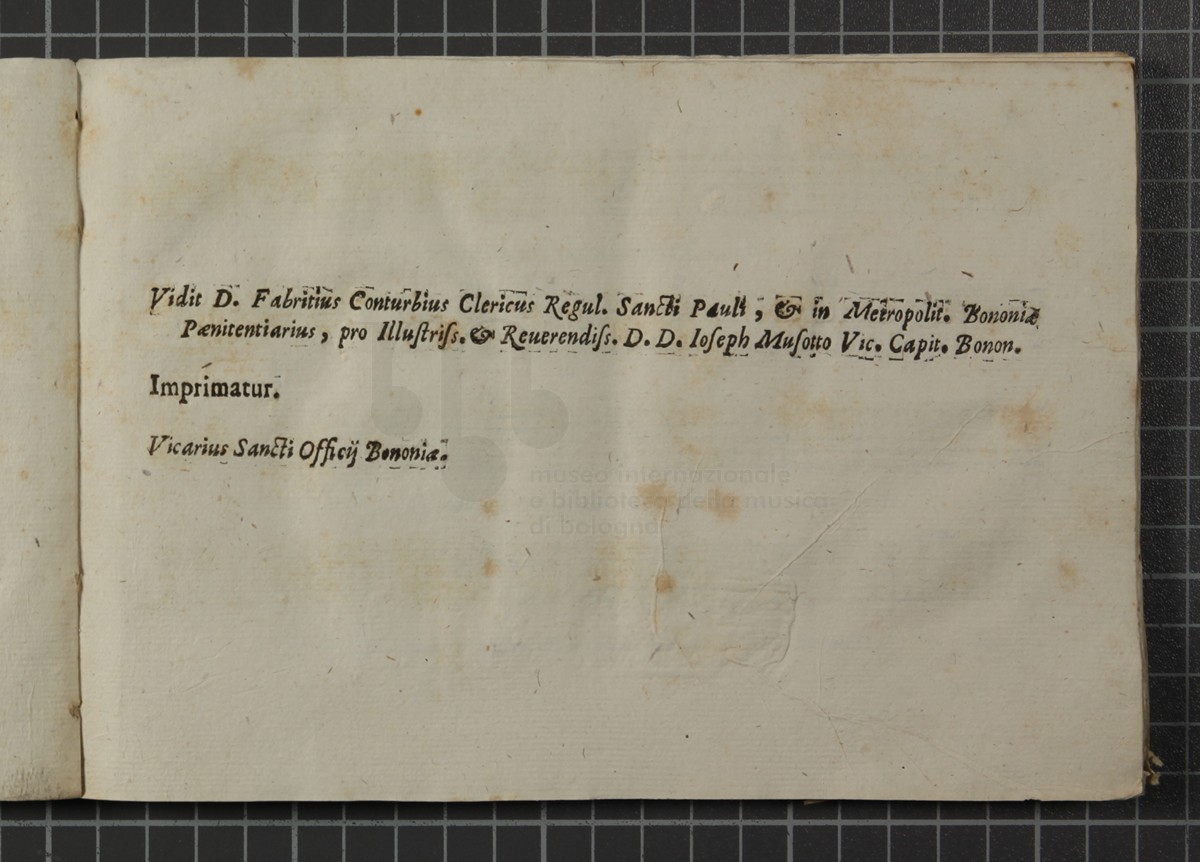 Vidit D. Fabritius Conturbius Clericus Regul. Sancti Pauli, & in Metropolit. Bononiæ
Pænitentiarius, pro Illuſtriſs. & Reuerendiſs. D. D. Ioſeph Muſotto Vic. Capit. Bonon.
Imprimatur.
Vicarius Sancti Officij Bononiæ.
museo internazionale
e biblioteca della musica
di bologna